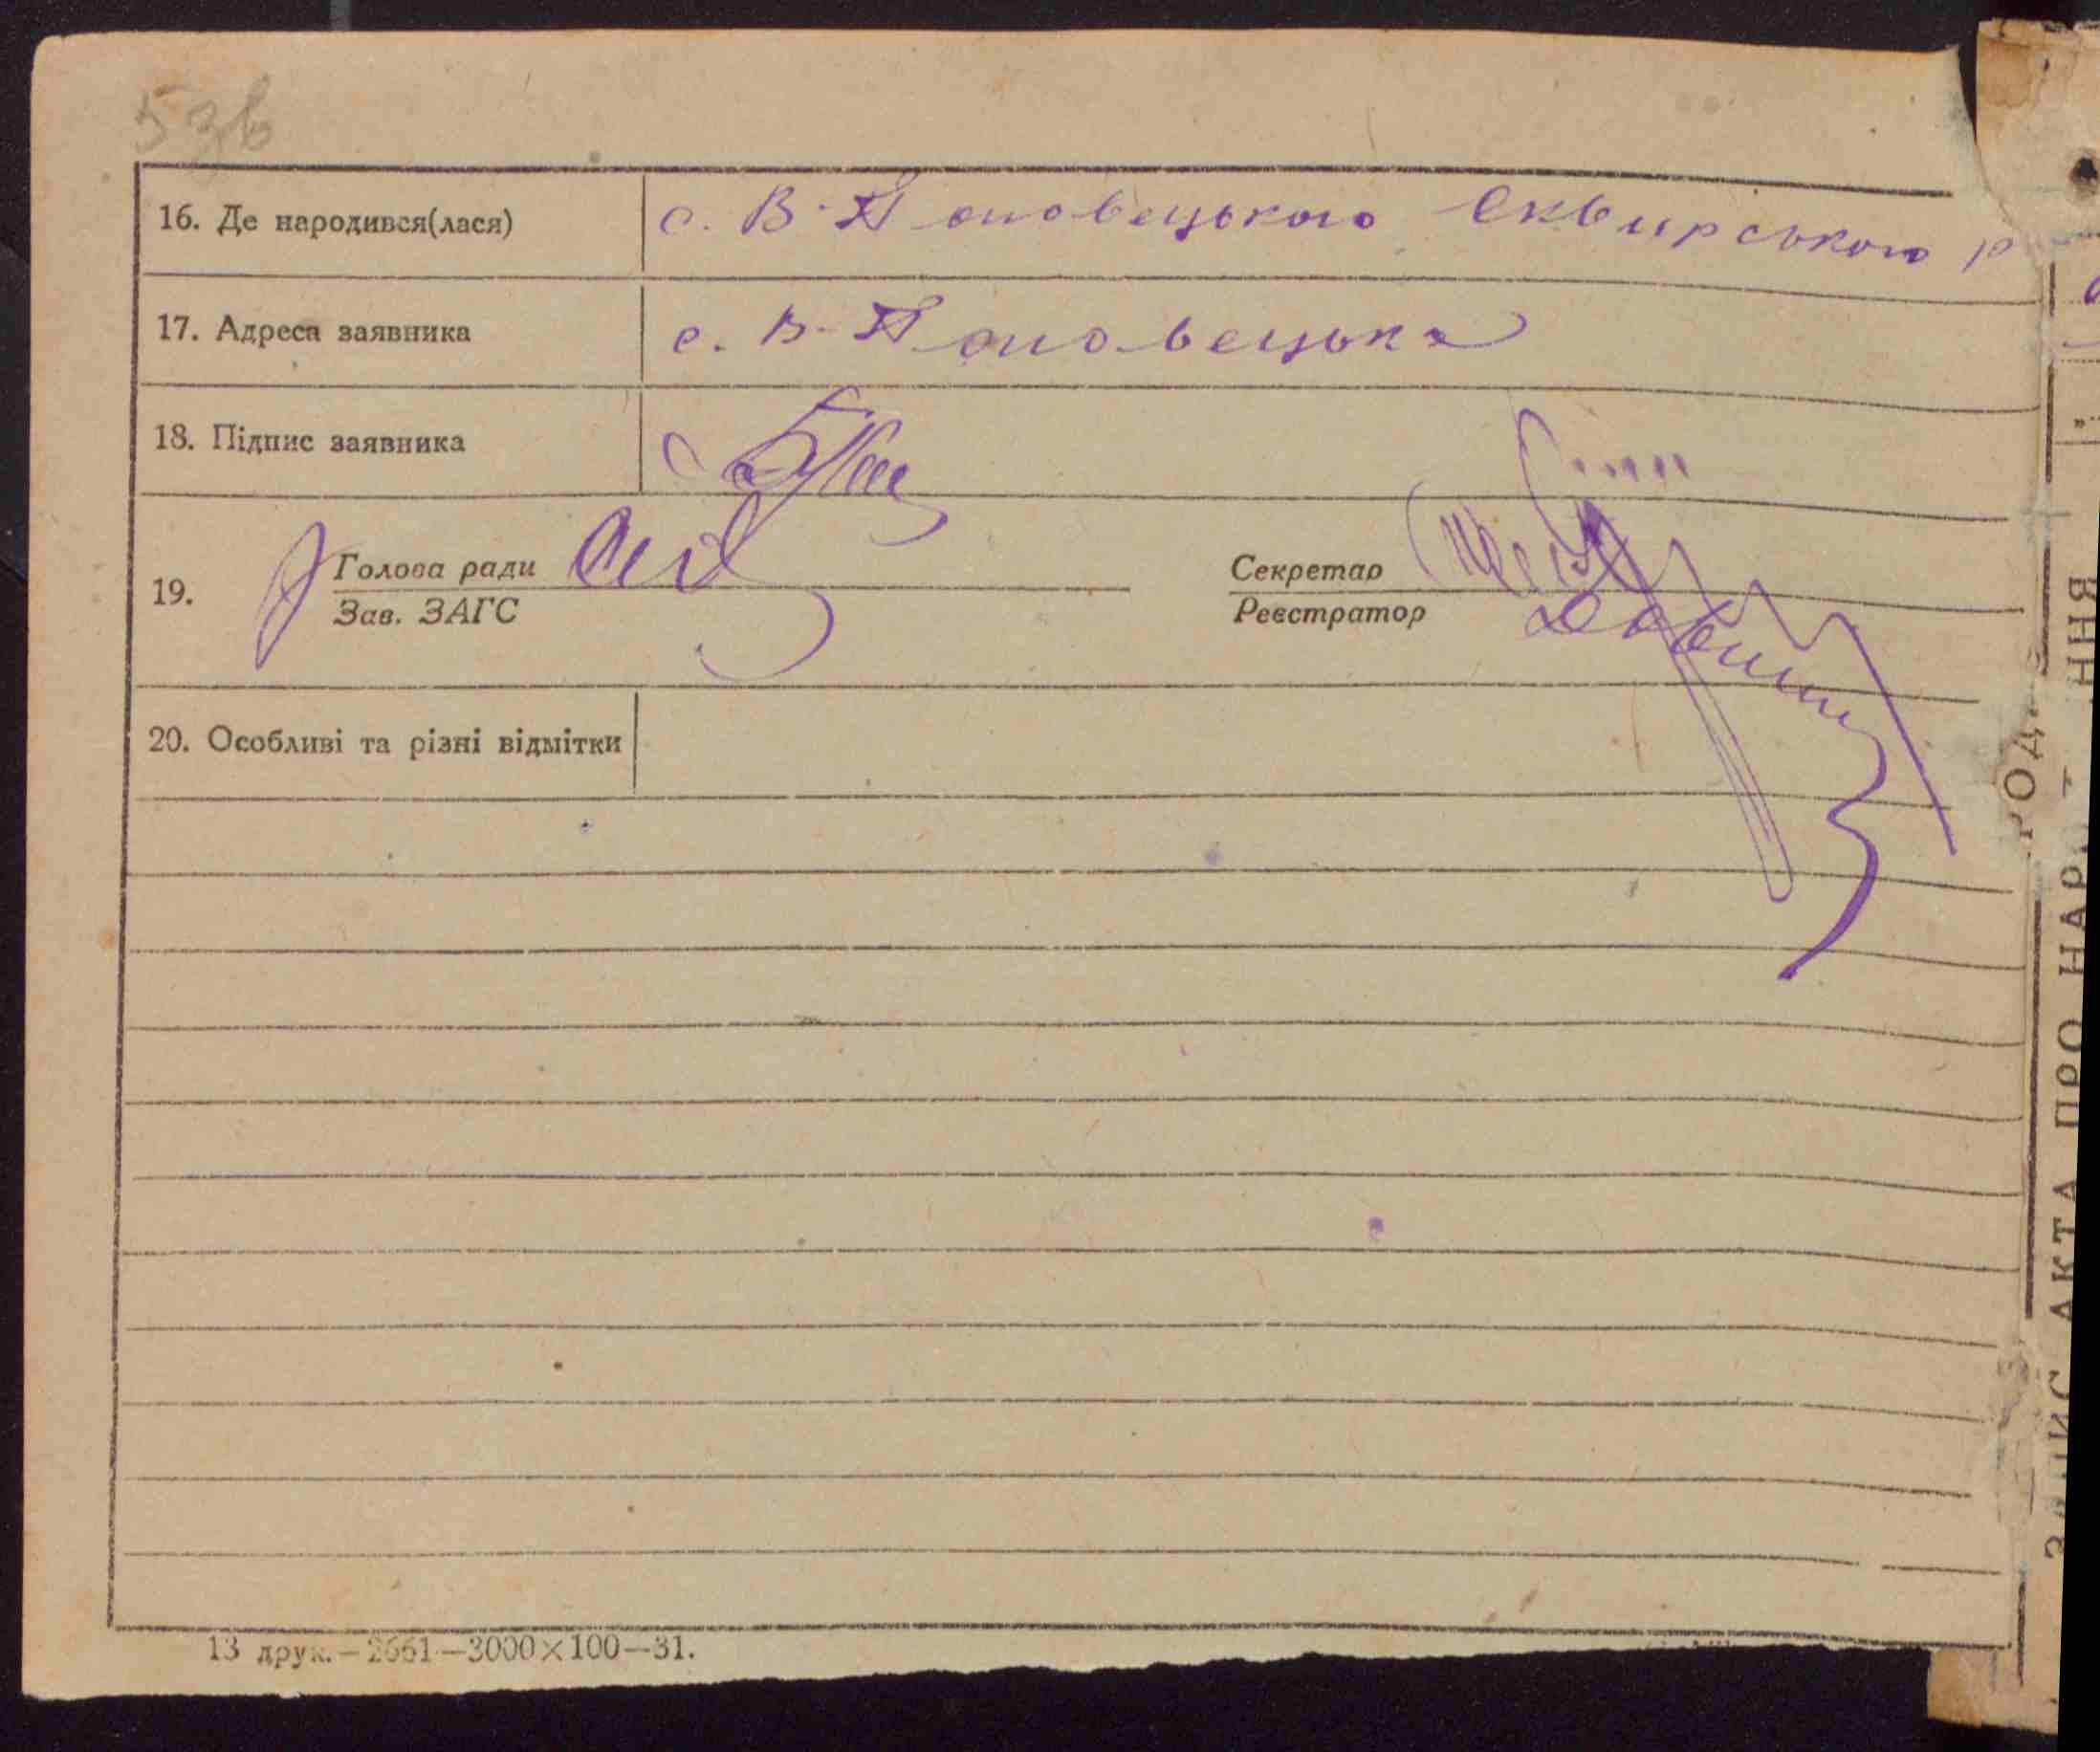 53в
16. Де народився(лася) с. В-Половецького Сквирського р
17. Адреса заявника с. В-Половецьке
18. Підпис заявника
19. Голова ради Секретар
Зав. ЗАГС Реєстратор
20. Особливі та різні відмітки
13 друк.—2661—3000×100—31.